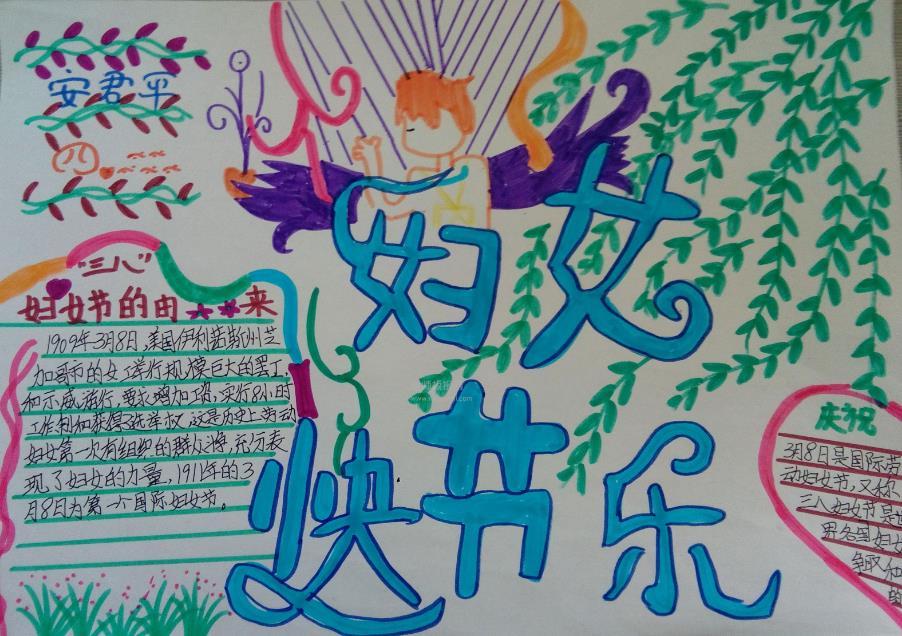 安君平
八
妇女
快节乐
"三八"
妇女节的由来
1909年3月8日,美国伊利诺斯州芝
加哥市的女工举行规模巨大的罢工
和示威游行,要求增加工资,实行8小时
工作制和获得选举权.这是历史上劳动
妇女第一次有组织的群众斗争,充分表
现了妇女的力量,1911年的3
月8日为第一个国际妇女节。
庆祝
3月8日是国际劳
动妇女节,又称
三八妇女节是世
界各国妇女
争取和